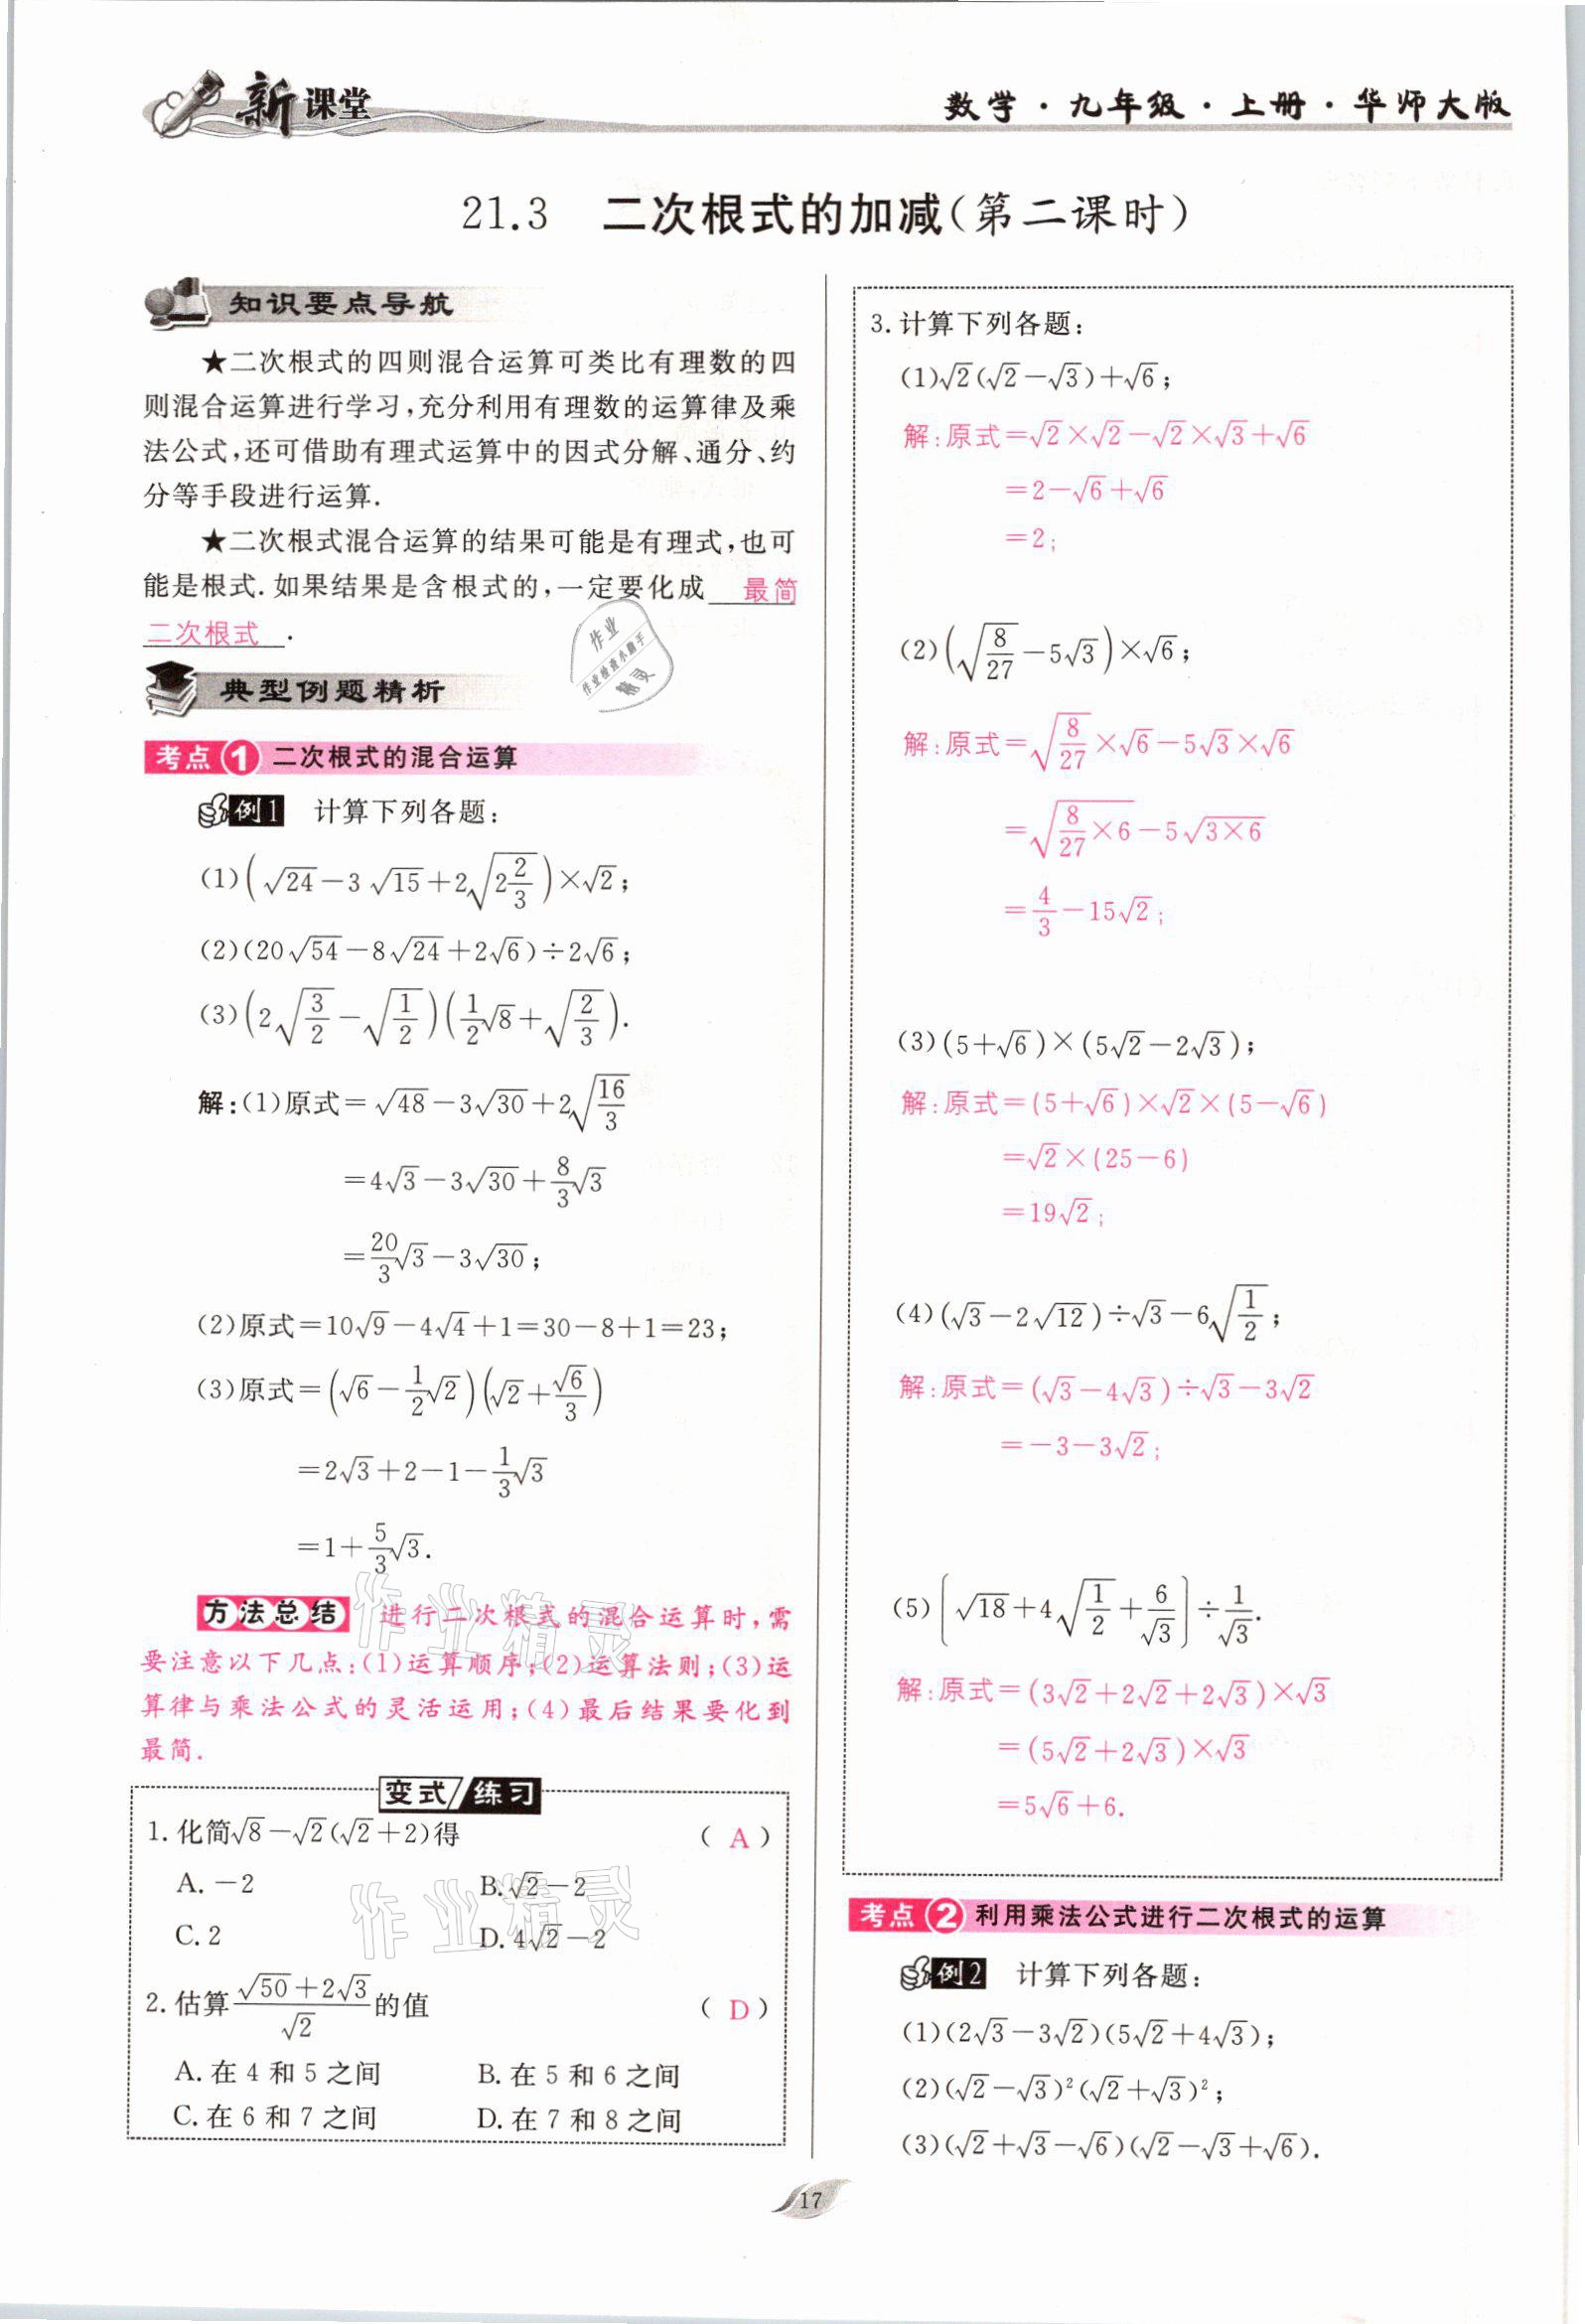 新课堂
数学·九年级·上册·华师大版
21.3 二次根式的加减(第二课时)
知识要点导航
★二次根式的四则混合运算可类比有理数的四
则混合运算进行学习,充分利用有理数的运算律及乘
法公式,还可借助有理式运算中的因式分解、通分、约
分等手段进行运算.
★二次根式混合运算的结果可能是有理式,也可
能是根式.如果结果是含根式的,一定要化成 最简
二次根式 .
典型例题精析
考点1 二次根式的混合运算
例1 计算下列各题:
(1)(√24-3√15+2√(2 2/3))×√2;
(2)(20√54-8√24+2√6)÷2√6;
(3)(2√(3/2)-√(1/2))(1/2√8+√(2/3)).
解:(1)原式=√48-3√30+2√(16/3)
=4√3-3√30+8/3√3
=20/3√3-3√30;
(2)原式=10√9-4√4+1=30-8+1=23;
(3)原式=(√6-1/2√2)(√2+√6/3)
=2√3+2-1-1/3√3
=1+5/3√3.
方法总结 进行二次根式的混合运算时,需
要注意以下几点:(1)运算顺序;(2)运算法则;(3)运
算律与乘法公式的灵活运用;(4)最后结果要化到
最简.
变式/练习
1.化简√8-√2(√2+2)得 ( A )
A.-2 B.√2-2
C.2 D.4√2-2
2.估算(√50+2√3)/√2的值 ( D )
A.在4和5之间 B.在5和6之间
C.在6和7之间 D.在7和8之间
3.计算下列各题:
(1)√2(√2-√3)+√6;
解:原式=√2×√2-√2×√3+√6
=2-√6+√6
=2;
(2)(√(8/27)-5√3)×√6;
解:原式=√(8/27)×√6-5√3×√6
=√(8/27×6)-5√(3×6)
=4/3-15√2;
(3)(5+√6)×(5√2-2√3);
解:原式=(5+√6)×√2×(5-√6)
=√2×(25-6)
=19√2;
(4)(√3-2√12)÷√3-6√(1/2);
解:原式=(√3-4√3)÷√3-3√2
=-3-3√2;
(5)[√18+4√(1/2)+6/√3]÷1/√3.
解:原式=(3√2+2√2+2√3)×√3
=(5√2+2√3)×√3
=5√6+6.
考点2 利用乘法公式进行二次根式的运算
例2 计算下列各题:
(1)(2√3-3√2)(5√2+4√3);
(2)(√2-√3)²(√2+√3)²;
(3)(√2+√3-√6)(√2-√3+√6).
17
作业
作业检查小助手
精灵
作业精灵
作业精灵